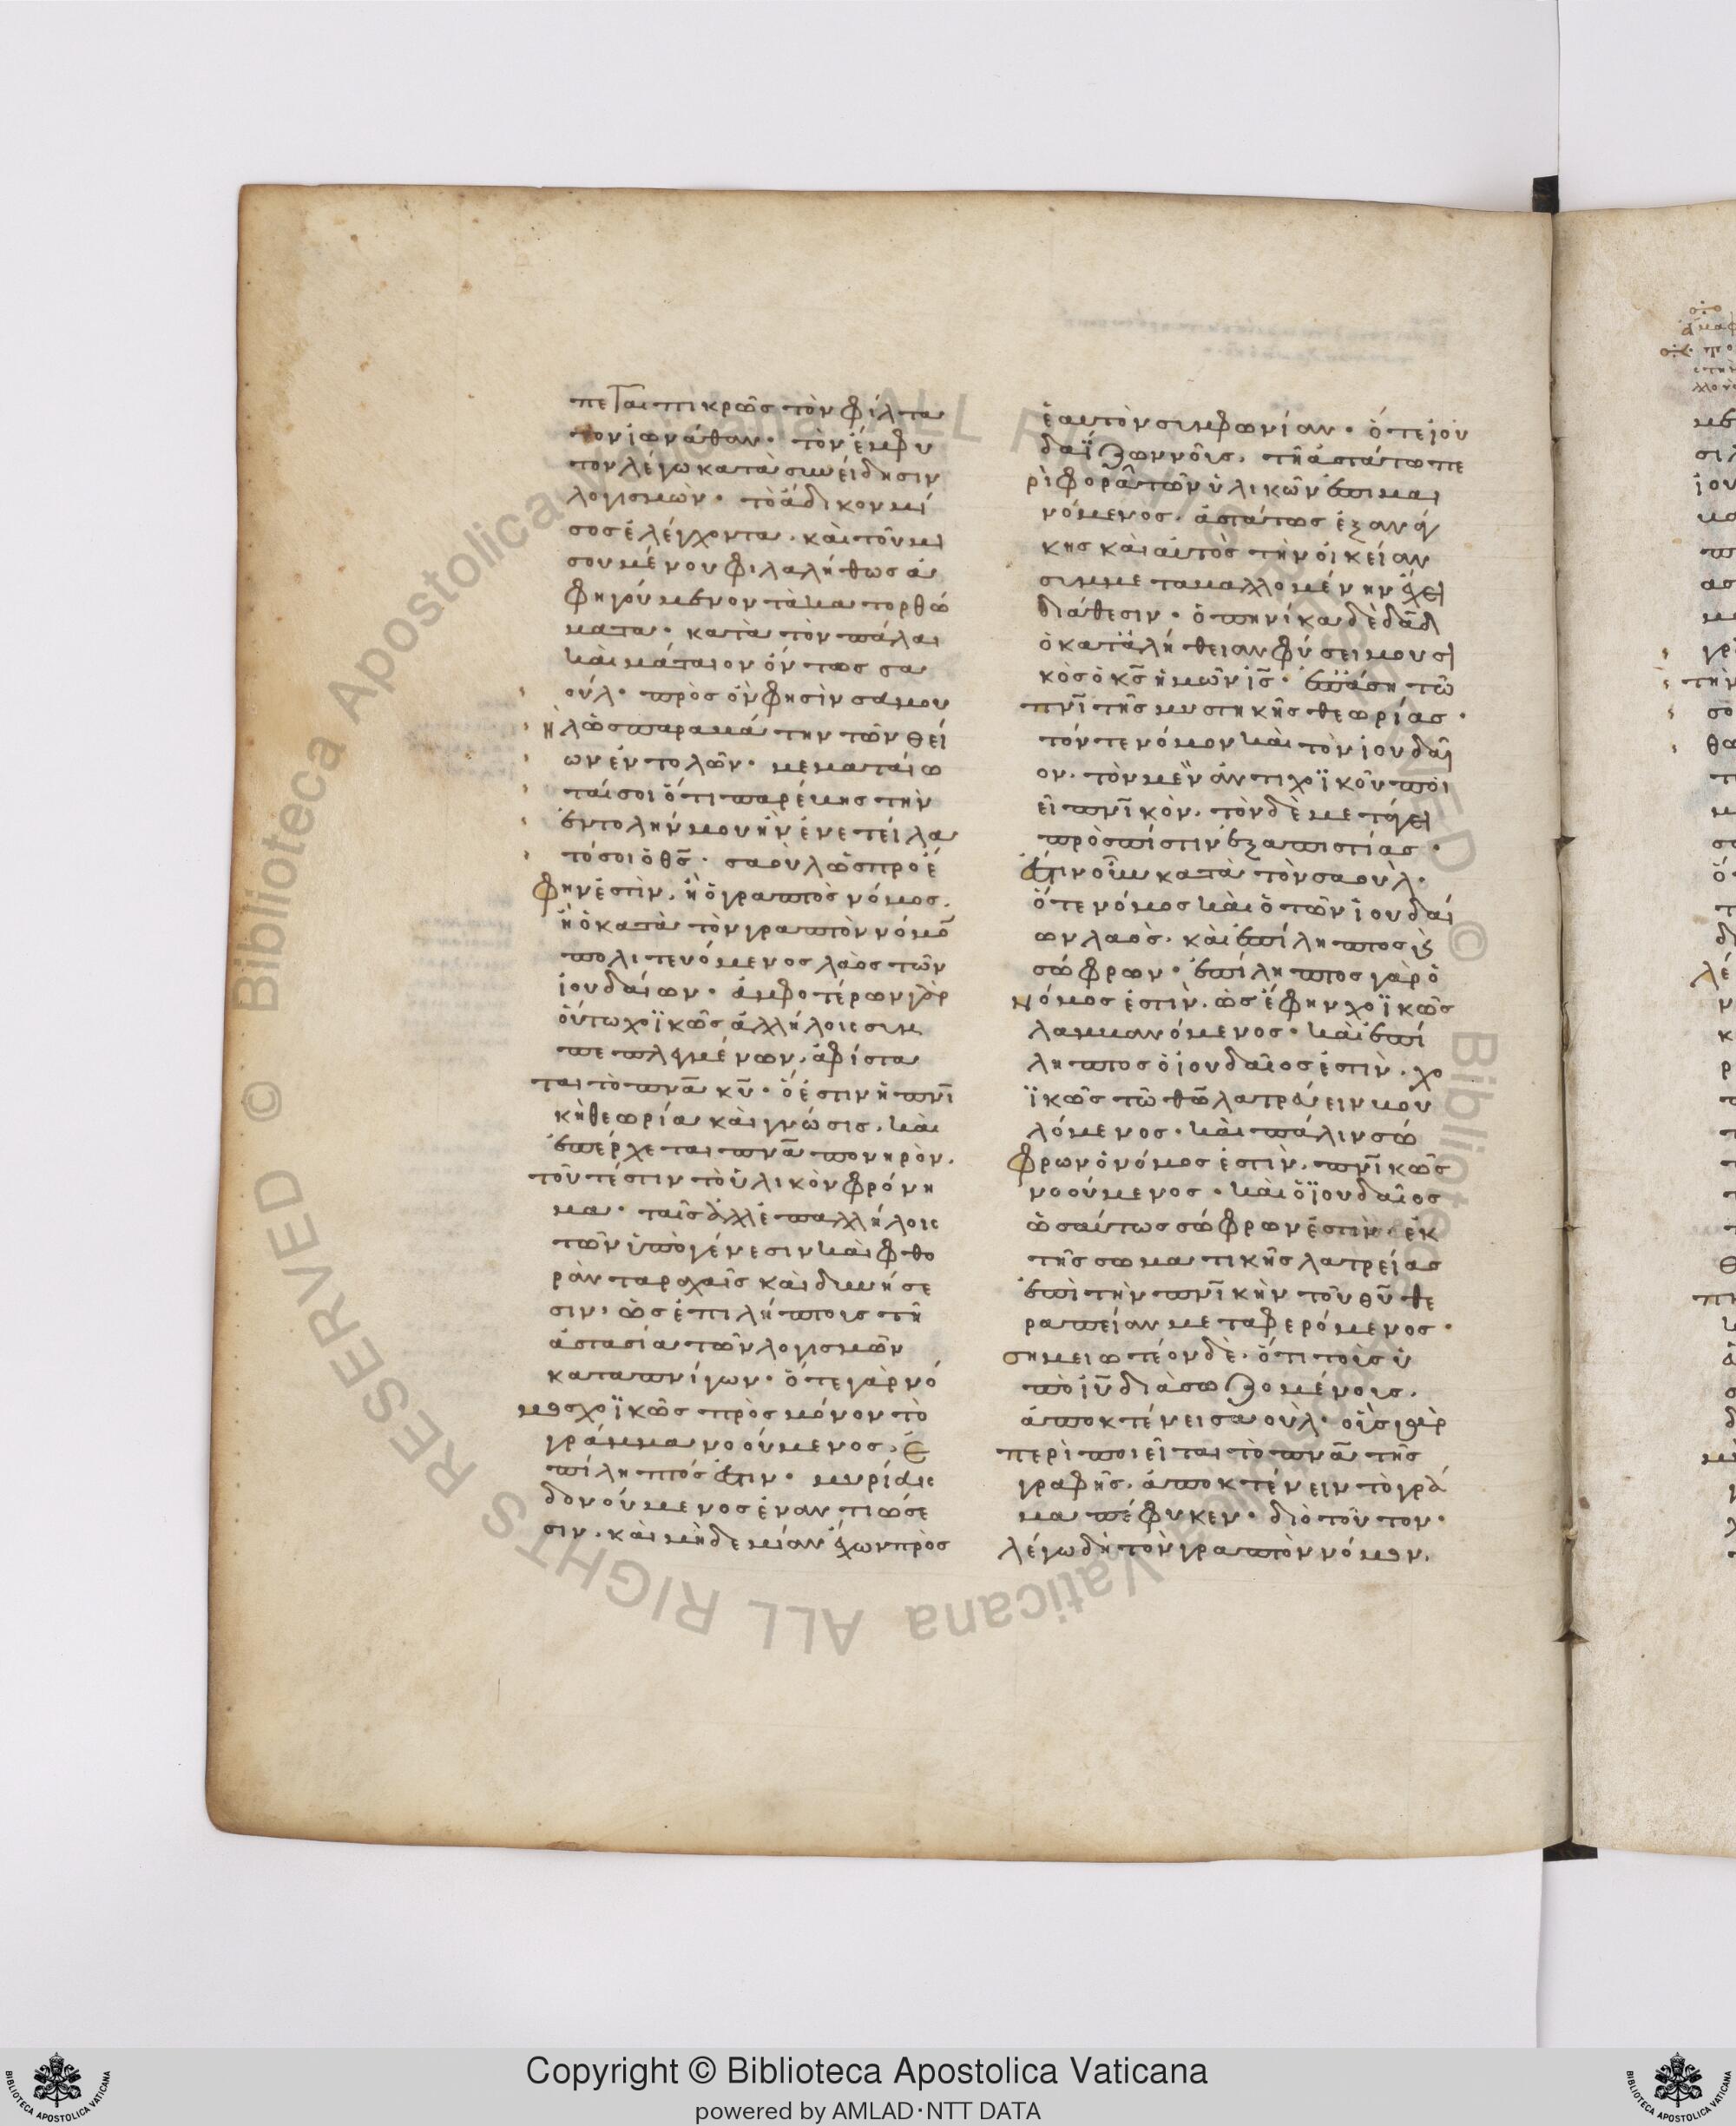 πεται πικρῶς τὸν φίλτα
τον ἰωνάθαν· τὸν ἔμφυ
τον λέγω κατὰ συνείδησιν
λογισμὸν· τὸ ἄδικον μί
σος ἐλέγχοντα· καὶ τοῦ μι
σουμένου φιλαλήθως ἀ
φηγούμενον τὰ κατορθώ
ματα· κατὰ τὸν πάλαι
καὶ μάταιον ὄντως σα
ούλ· πρὸς ὃν φησὶν σαμου
ὴλ ὡς παραβάτην τῶν θεί
ων ἐντολῶν· μεματαίω
ταί σοι ὅτι παρέβης τὴν
ἐντολήν μου ἣν ἐνετείλα
τό σοι ὁ θς̄· σαοὺλ ὡς προέ
φην ἐστὶν, ἢ ὁ γραπτὸς νόμος,
ἢ ὁ κατὰ τὸν γραπτὸν νόμο̄
πολιτευόμενος λαὸς τῶν
ἰουδαίων· ἀμφοτέρων γὰρ
οὕτω χοϊκῶς ἀλλήλοις συμ
πεπλεγμένων, ἀφίστα
ται τὸ πνᾱ κῡ· ὅ ἐστιν ἡ πνῑ
κὴ θεωρία καὶ γνώσις, καὶ
ἐπέρχεται πνᾱ πονηρὸν,
τοῦτέστιν τὸ ὑλικὸν φρόνη
μα· ταῖς ἀλλεπαλλήλοις
τῶν ὑπὸ γένεσιν καὶ φθο
ρὰν ταραχαῖς καὶ δινήσε
σιν, ὡς ἐπιλήπτοις τῆ
ἀστασία τῶν λογισμῶν
καταπνίγων· ὅτε γὰρ νό
μος χοϊκῶς πρὸς μόνον τὸ
γράμμα νοούμενος, ἐ
πίληπτός ἐστιν· μυρίαις
δονούμενος ἐναντιώσε
σιν, καὶ μὴδεμίαν ἔχων πρὸς
ἑαυτὸν συμφωνίαν· ὅ τε ἰου
δαΐζων νοῦς, τῆ ἀστάτω πε
ριφορᾶ τῶν ὑλικῶν ἐπιμαι
νόμενος, ἀστάτως ἐξ ἀνάγ
κης καὶ αὐτὸς τὴν οἰκείαν
συμμεταβαλλομένην ἔχει
διάθεσιν· ὁπηνίκα δὲ δᾱδ
ὁ κατ' ἀλήθειαν φύσει μουσι
κὸς ὁ κς̄ ἡμῶν ις̄· ἐπάση τῶ
πνῑ τῆς μυστηκῆς θεωρίας·
τόν τε νόμον καὶ τὸν ἰουδαῖ
ον, τὸν μὲν ἀντὶ χοϊκοῦ ποι
εῖ πνῑκὸν, τὸν δὲ μετάγει
πρὸς πίστιν ἐξ ἀπιστίας·
ἔστιν οὖν κατὰ τὸν σαοὺλ·
ὅ τε νόμος καὶ ὁ τῶν ἰουδαί
ων λαὸς, καὶ ἐπίληπτος καὶ
σώφρων· ἐπίληπτος γὰρ ὁ
νόμος ἐστὶν, ὡς ἔφην χοϊκῶς
λαμβανόμενος· καὶ ἐπί
ληπτος ὁ ἰουδαῖος ἐστὶν, χο
ϊκῶς τῶ θῶ λατρεύειν βου
λόμενος· καὶ πάλιν σώ
φρων ὁ νόμος ἐστὶν, πνῑκῶς
νοούμενος· καὶ ὁ ἰουδαῖος
ὡσαύτως σώφρων ἐστὶν, ἐκ
τῆς σωματικῆς λατρείας
ἐπὶ τὴν πνῑκὴν τοῦ θῡ θε
ραπείαν μεταφερόμενος·
σημειωτέον δὲ, ὅτι τοὺς ὑ
πὸ ιῡ διασωζομένους,
ἀποκτένει σαούλ· οὓς γὰρ
περιποιεῖται τὸ πνᾱ τῆς
γραφῆς, ἀποκτένειν τὸ γρά
μα πέφυκεν· διὸ τοῦτον·
λέγω δὴ τὸν γραπτὸν νόμον,
Copyright © Biblioteca Apostolica Vaticana
powered by AMLAD·NTT DATA